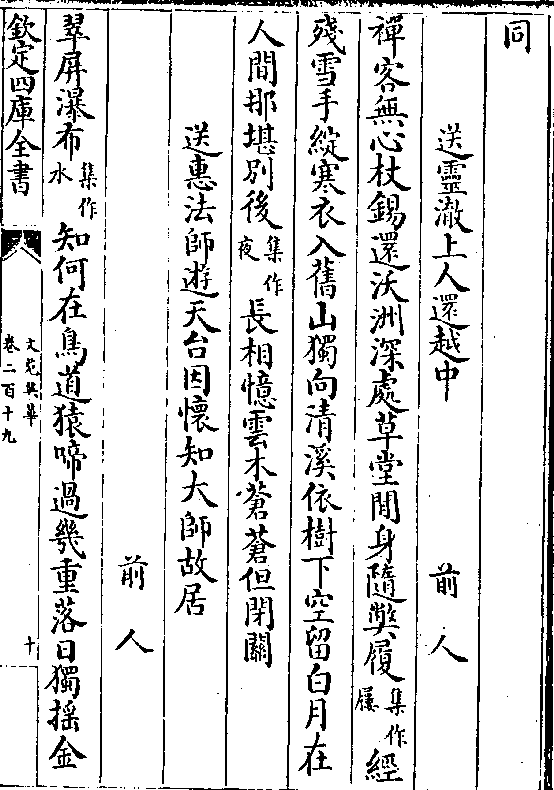 同
送靈澈上人還越中　前人
禪客無心杖錫還沃洲深處草堂閒身隨獘履集作屨經
殘雪手綻寒衣入舊山獨向清溪依樹下空留白月在
人間那堪別後集作夜長相憶雲木蒼蒼但閉關
送惠法師遊天台因懷知大師故居
前人
翠屏瀑布集作水知何在鳥道猿啼過幾重落日獨揺金
欽定四庫全書　文苑英華 卷二百十九　十